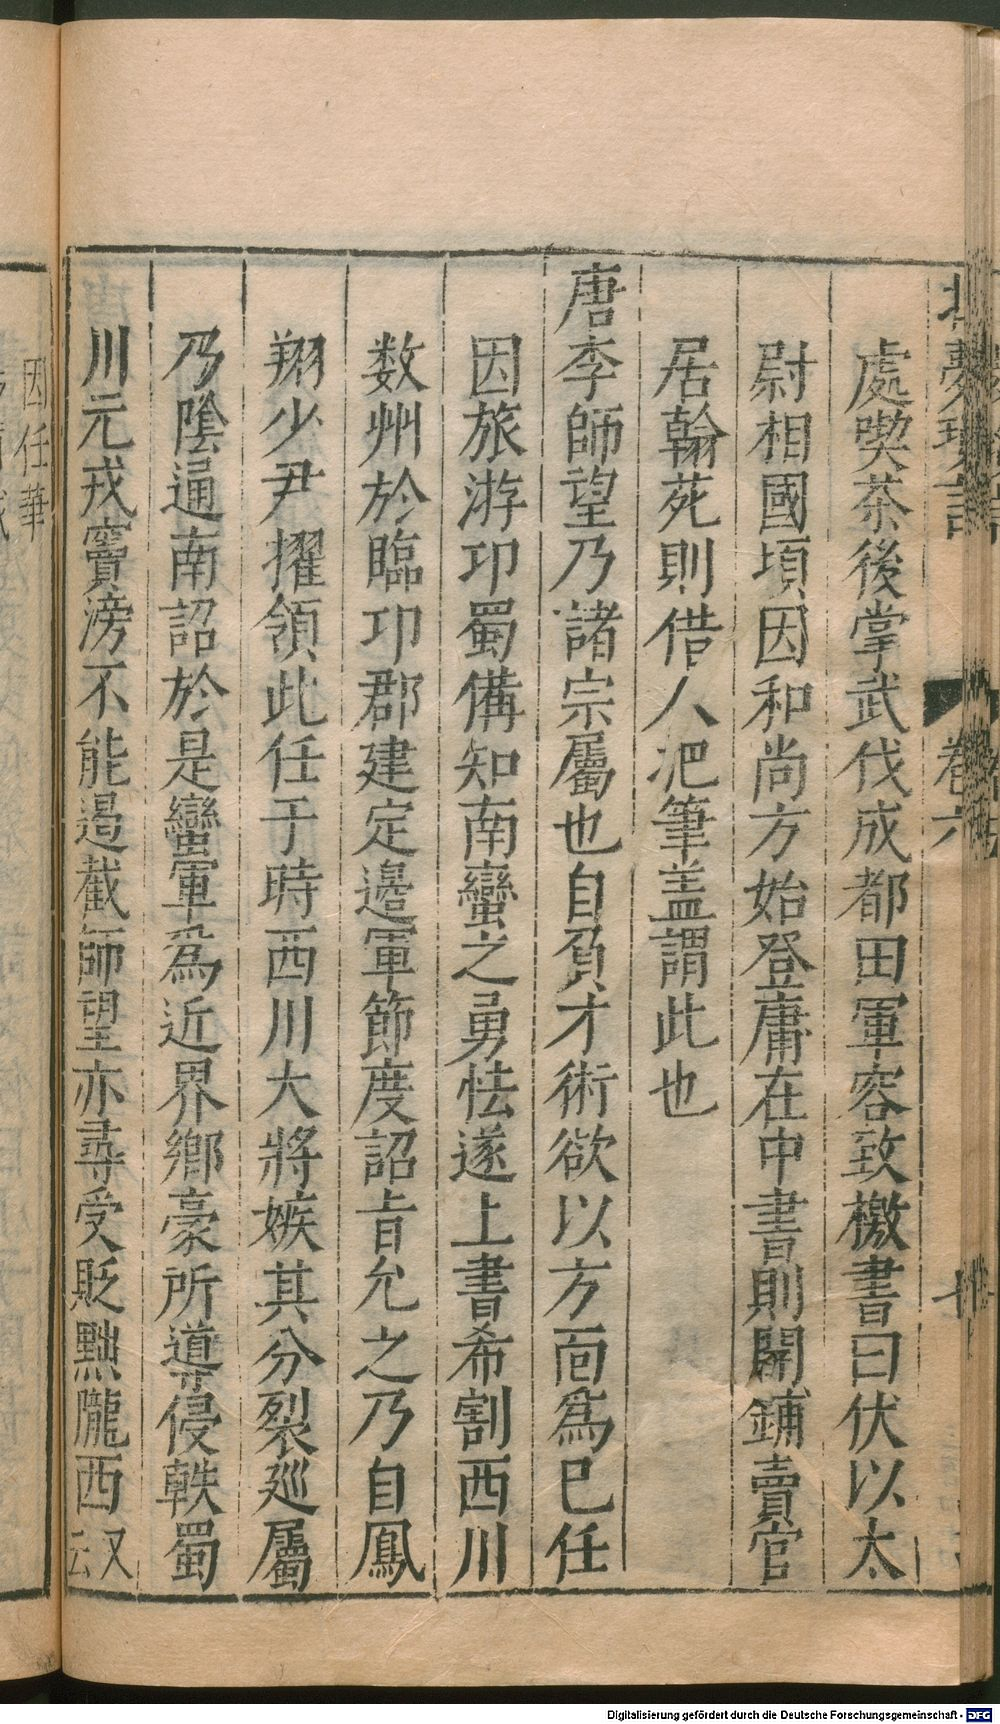 處喫茶後掌武伐成都田軍容致檄書曰伏以太
尉相國頃因和尚方始登庸在中書則開鋪賣官
居翰苑則借人把筆盖謂此也
唐李師望乃諸宗屬也自負才術欲以方面爲巳任
因旅游卭蜀備知南蠻之勇怯遂上書希割西川
数州於臨卭郡建定邊軍節度詔旨允之乃自鳳
翔少尹擢領此任于時西川大將嫉其分裂廵屬
乃陰通南詔於是蠻軍爲近界鄉豪所導侵軼蜀
川元戎竇滂不能遏截師望亦尋受貶黜隴西又云
因任華
卷六
七
Digitalisierung gefördert durch die Deutsche Forschungsgemeinschaft - DFG